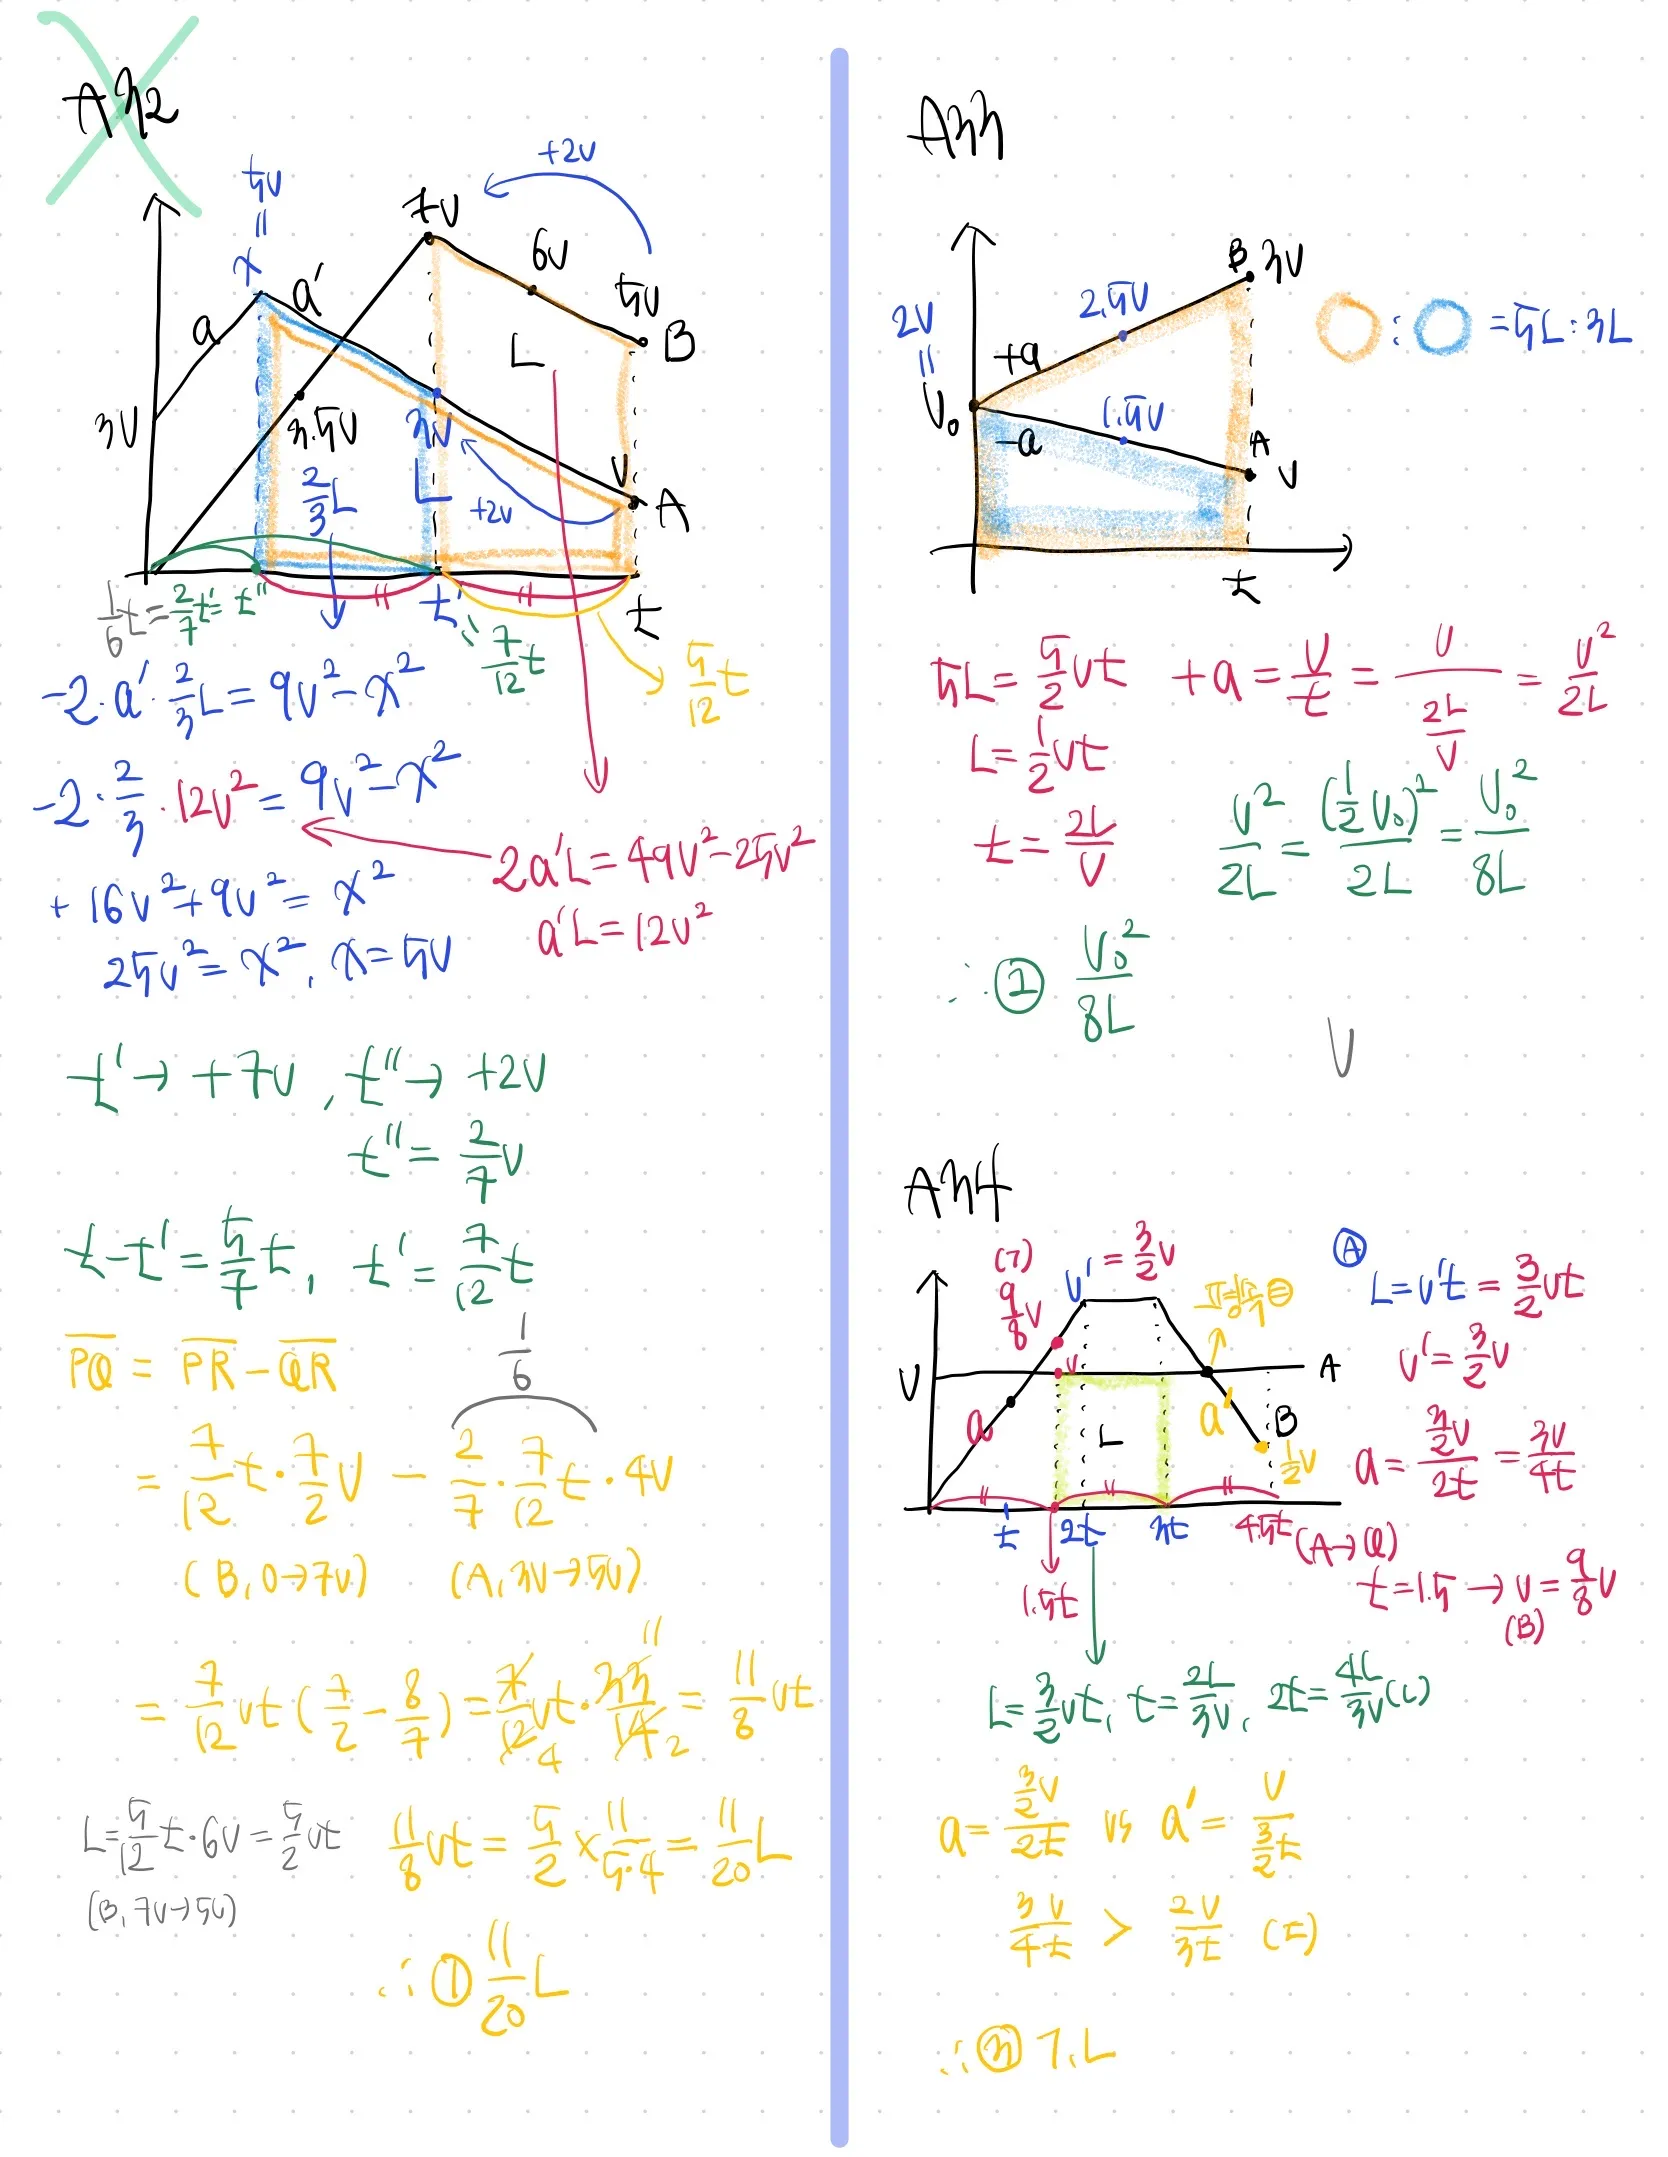 A32
+2v
5v
=
x
7v
6v
5v
B
a
a'
3v
3.5v
3v
L
V
A
2/3 L
L
+2v
1/6 t = 2/7 t' = t''
t'
t
7/12 t
5/12 t
-2·a'·2/3 L = 9v² - x²
-2·2/3·12v² = 9v² - x²
+16v² + 9v² = x²
25v² = x², x = 5v
2a'L = 49v² - 25v²
a'L = 12v²
t' → +7v, t'' → +2v
t'' = 2/7 v
t - t' = 5/7 t, t' = 7/12 t
PQ = PR - QR
1/6
= 7/12 t · 7/2 v - 2/7 · 7/12 t · 4v
(B, 0→7v) (A, 3v→5v)
= 7/12 vt (7/2 - 8/7) = 7/12 vt · 33/14 = 11/8 vt
11
4
2
L = 5/12 t · 6v = 5/2 vt
(B, 7v→5v)
11/8 vt = 5/2 × 11/5·4 = 11/20 L
∴ ① 11/20 L
A33
2v
=
V₀
B 3v
2.5v
+a
1.5v
-a
A
v
t
: = 5L : 3L
5L = 5/2 vt
L = 1/2 vt
t = 2L/v
+a = v/t = v/(2L/v) = v²/2L
v²/2L = (1/2 V₀)²/2L = V₀²/8L
∴ ① V₀²/8L
V
A34
(ㄱ)
9/8 v
v' = 3/2 v
평속 ⊖
V
v
A
a
L
a'
B
1/2 v
t
2t
3t
4.5t (A→Q)
1.5t
Ⓐ
L = v't = 3/2 vt
v' = 3/2 v
a = (3/2 v)/2t = 3v/4t
t = 1.5 → v = 9/8 v
(B)
L = 3/2 vt, t = 2L/3v, 2t = 4L/3v (ㄴ)
a = (3/2 v)/2t vs a' = v/(3/2 t)
3v/4t > 2v/3t (ㄷ)
∴ ③ ㄱ, ㄴ